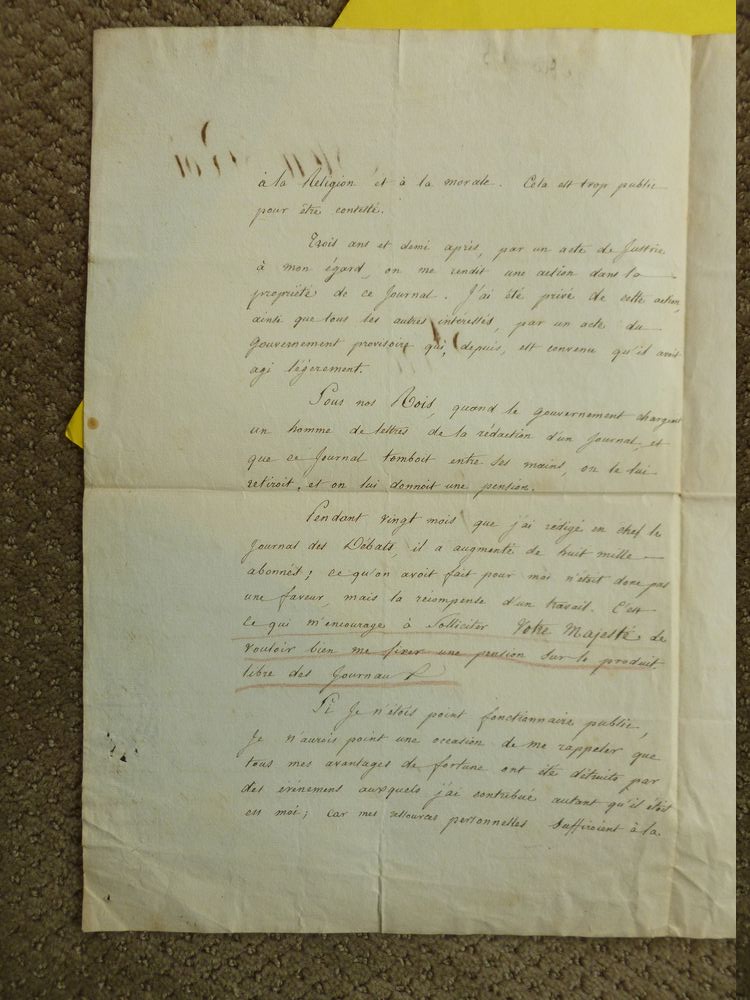 à la Religion et à la morale. Cela est trop public
pour être contesté.
Trois ans et demi après, par un acte de Justice
à mon égard, on me rendit une action dans la
propriété de ce Journal. J'ai été privé de cette action,
ainsi que tous les autres interessés, par un acte du
Gouvernement provisoire qui, depuis, est convenu qu'il avoit
agi légèrement.
Sous nos Rois, quand le Gouvernement chargeoit
un homme de lettres de la rédaction d'un Journal, et
que ce Journal tomboit entre ses mains, on le lui
retiroit, et on lui donnoit une pension.
Pendant vingt mois que j'ai rédigé en chef le
Journal des Débats, il a augmenté de huit mille
abonnés; ce qu'on avoit fait pour moi n'était donc pas
une faveur, mais la récompense d'un travail. C'est
ce qui m'encourage à solliciter Votre Majesté de
vouloir bien me fixer une pension sur le produit
libre des Journaux.
Si je n'étois point fonctionnaire public,
Je n'aurois point une occasion de me rappeler que
tous mes avantages de fortune ont été détruits par
des événemens auxquels j'ai contribué autant qu'il étoit
en moi; car mes ressources personnelles suffiroient à la